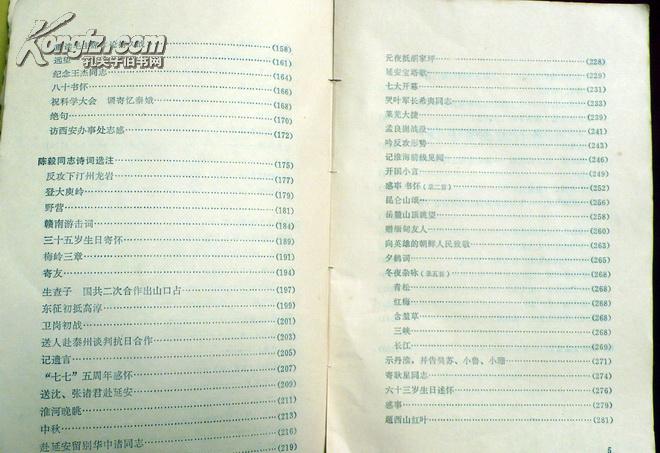 Kongfz.com
孔夫子旧书网
远望……(161)
纪念王杰同志……(164)
八十书怀……(166)
祝科学大会 调寄忆秦娥……(168)
绝句……(170)
访西安办事处志感……(172)
陈毅同志诗词选注……(175)
反攻下汀州龙岩……(177)
登大庾岭……(179)
野营……(181)
赣南游击词……(184)
三十五岁生日寄怀……(189)
梅岭三章……(191)
寄友……(194)
生查子 国共二次合作出山口占……(197)
东征初抵高淳……(199)
卫岗初战……(201)
送人赴泰州谈判抗日合作……(203)
记遗言……(205)
“七七”五周年感怀……(207)
送沈、张诸君赴延安……(209)
淮河晚眺……(211)
中秋……(213)
赴延安留别华中诸同志……(216)
(219)
元夜抵胡家坪……(228)
延安宝塔歌……(229)
七大开幕……(231)
哭叶军长希夷同志……(233)
莱芜大捷……(239)
孟良崮战役……(241)
吟反攻形势……(243)
记淮海前线见闻……(246)
开国小言……(249)
感事书怀(第二首)……(252)
昆仑山颂……(256)
岳麓山顶眺望……(258)
赠缅甸友人……(260)
向英雄的朝鲜人民致敬……(263)
夕鹤词……(265)
冬夜杂咏(录五首)……(268)
青松……(268)
红梅……(268)
含羞草……(268)
三峡……(268)
长江……(269)
示丹淮，并告昊苏、小鲁、小珊……(271)
寄耿星同志……(274)
六十三岁生日述怀……(276)
感事……(279)
题西山红叶……(281)
5